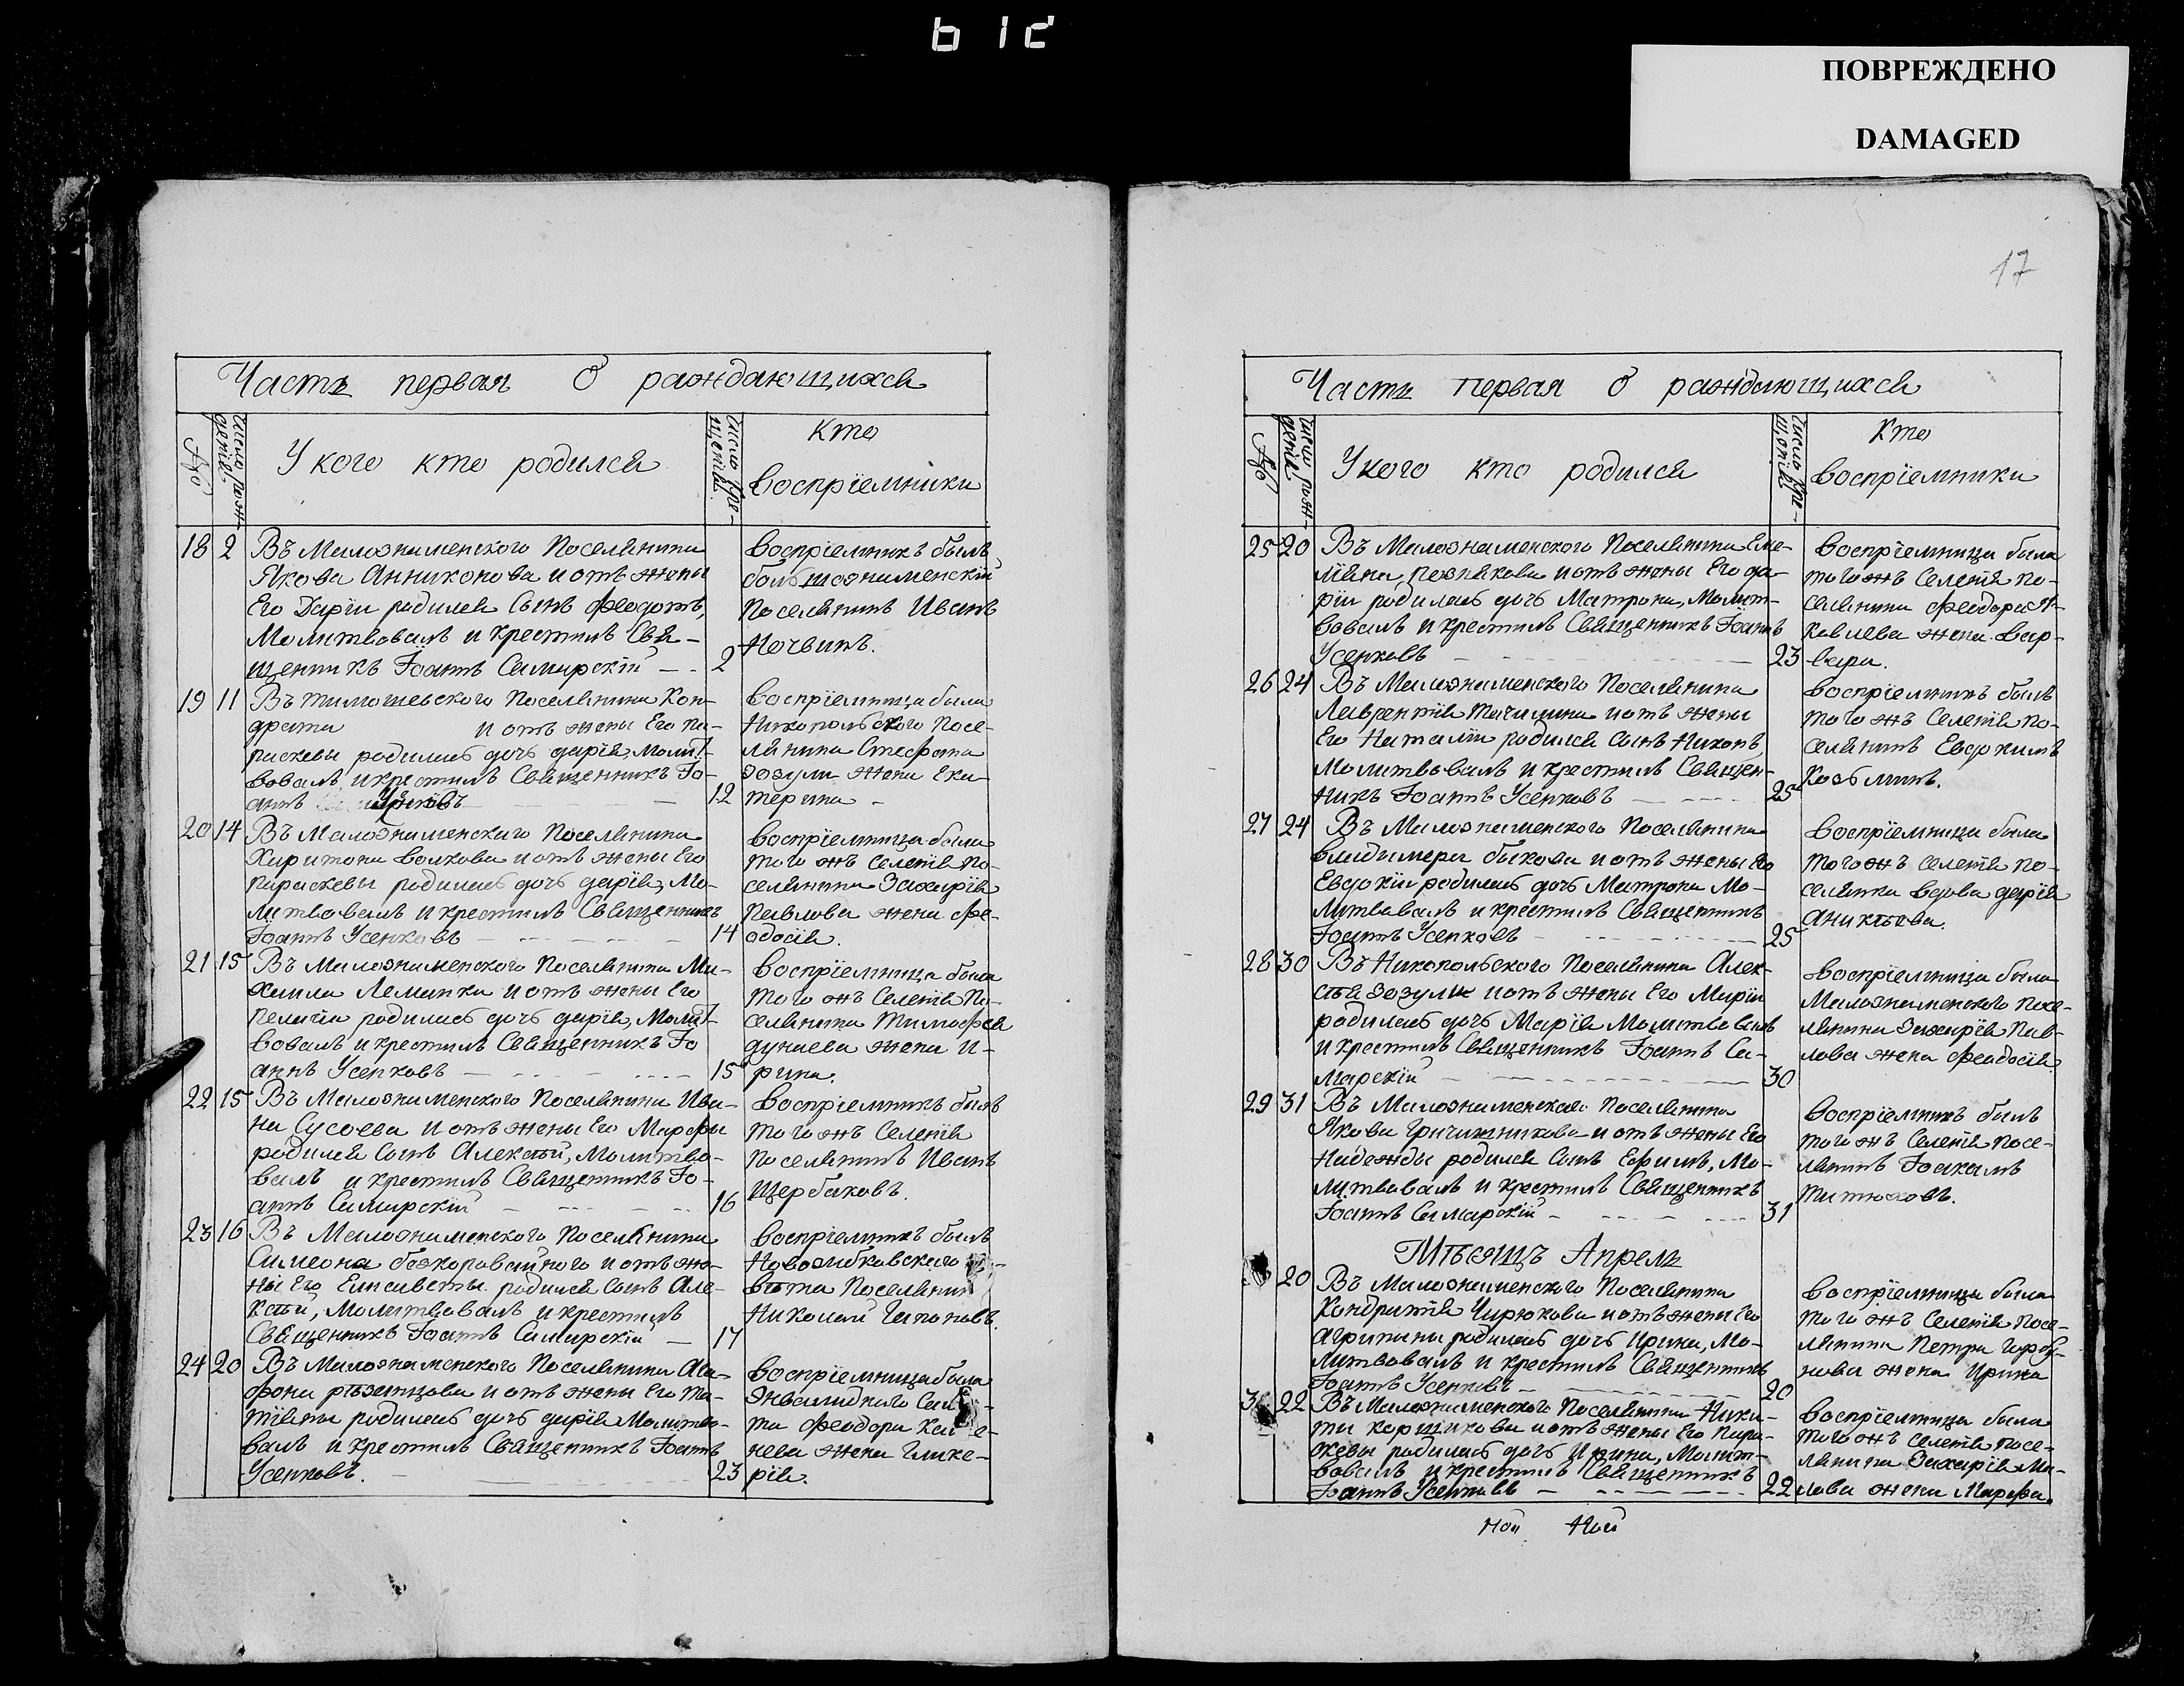 ПОВРЕЖДЕНО
DAMAGED
17
Часть первая О раждающихся
№
число рож-
денія
У кого кто родился
число кре-
щенія
Кто
воспріемники
18 2 Въ Малознаменского Поселянина
Якова Анниконова и отъ жены
Его Даріи родился Сынъ Феодотъ,
Молитвовалъ и крестилъ Свя-
щенникъ Іоаннъ Самарскій 2
воспріемникъ былъ
большознаменскій
Поселянинъ Иванъ
Нечвинъ.
19 11 Въ тимошевского Поселянина Кон-
драта и отъ жены Его Па-
раскевы родилась дочь дарія, Молит-
вовалъ и крестилъ Священникъ Іо-
аннъ Усенковъ 12
воспріемница была
Никопольского Посе-
лянина Стефана
зозули жена Ека-
терина
20 14 Въ Малознаменскаго Поселянина
Харитона волкова и отъ жены Его
параскевы родилась дочь дарія, Мо-
литвовалъ и крестилъ Священникъ
Іоаннъ Усенковъ 14
воспріемница была
того жъ Селенія По-
селянина Захарія
Павлова жена Фе-
одосія.
21 15 Въ Малознаменского Поселянина Ми-
хаила Леманка и отъ жены Его
пелагіи родилась дочь дарія, Молит-
вовалъ и крестилъ Священникъ Іо
аннъ Усенковъ 15
воспріемница была
того жъ Селенія По-
селянина Тимофея
дунаева жена И-
рина.
22 15 Въ Малознаменского Поселянина Ива-
на Сусоева и отъ жены Его Марфы
родился Сынъ Алексѣй, Молитво-
валъ и крестилъ Священникъ Іо-
аннъ Самарскій 16
воспріемникъ былъ
того жъ Селенія
Поселянинъ Иванъ
Щербаковъ.
23 16 Въ Малознаменского Поселянина
Симеона безкоровайного и отъ же-
ны Его Елисаветы родился Сынъ Але-
ксѣй, Молитвовалъ и крестилъ
Священникъ Іоаннъ Самарскій 17
воспріемникъ былъ
Новозибковского
вѣта Поселянин
Николай Гапоновъ.
24 20 Въ Малознаменского Поселянина Ага-
фона рѣзанцова и отъ жены Его Та-
тіяны родилась дочь дарія Молитво-
валъ и крестилъ Священникъ Іоаннъ
Усенковъ. 23
воспріемница была
Энвалидного
та Феодора
нева жена Глике-
рія.
Часть первая О раждающихся
№
число рож-
денія
У кого кто родился
число кре-
щенія
Кто
воспріемники
25 20 Въ Малознаменского Поселянина Еме-
ліяна познякова и отъ жены Его да-
ріи родилась дочь Матрона, Молит-
вовалъ и крестилъ Священникъ Іоаннъ
Усенковъ 23
воспріемница была
того жъ Селенія по-
селянина Феодора Я-
ковлева жена вар-
вара.
26 24 Въ Малознаменского Поселянина
Лаврентія Тачилина и отъ жены
Его Наталіи родился Сынъ Никонъ,
Молитвовалъ и крестилъ Священ-
никъ Іоаннъ Усенковъ 25
воспріемникъ былъ
того жъ Селенія по-
селянинъ Евдокимъ
Козьминъ.
27 24 Въ Малознаменского Поселянина
владимера быкова и отъ жены его
Евдокіи родилась дочь Матрона Мо-
литвовалъ и крестилъ Священникъ
Іоаннъ Усенковъ 25
воспріемница была
того жъ Селенія по-
селянка вдова дарія
Аникѣева.
28 30 Въ Никопольского Поселянина Алек-
сѣя зозули и отъ жены Его Маріи
родилась дочь Марія Молитвовалъ
и крестилъ Священникъ Іоаннъ Са-
марскій 30
воспріемница была
Малознаменского посе-
лянина Захарія Пав-
лова жена Феодосія
29 31 Въ Малознаменского Поселянина
Якова Гричишникова и отъ жены Его
Надежды родился Сынъ Ефимъ, Мо-
литвовалъ и крестилъ Священникъ
Іоаннъ Самарскій 31
воспріемникъ былъ
того жъ Селенія посе-
лянинъ Іоакимъ
Титюковъ.
Мѣсяцъ Апрель
20 Въ Малознаменского Поселянина
Кондратія Чирюкова и отъ жены Его
агрипины родилась дочь Ирина, Мо-
литвовалъ и крестилъ Священникъ
Іоаннъ Усенковъ 20
воспріемница была
того жъ Селенія посе-
лянина Петра Горбу-
нова жена Ирина
22 Въ Малознаменского Поселянина Ники-
ты Коршикова и отъ жены Его Пара-
скевы родилась дочь Ирина, Молит-
вовалъ и крестилъ Священникъ
Іоаннъ Усенковъ 22
воспріемница была
того жъ селенія посе-
лянина Захарія Ми-
лова жена Марфа.
ной Ной